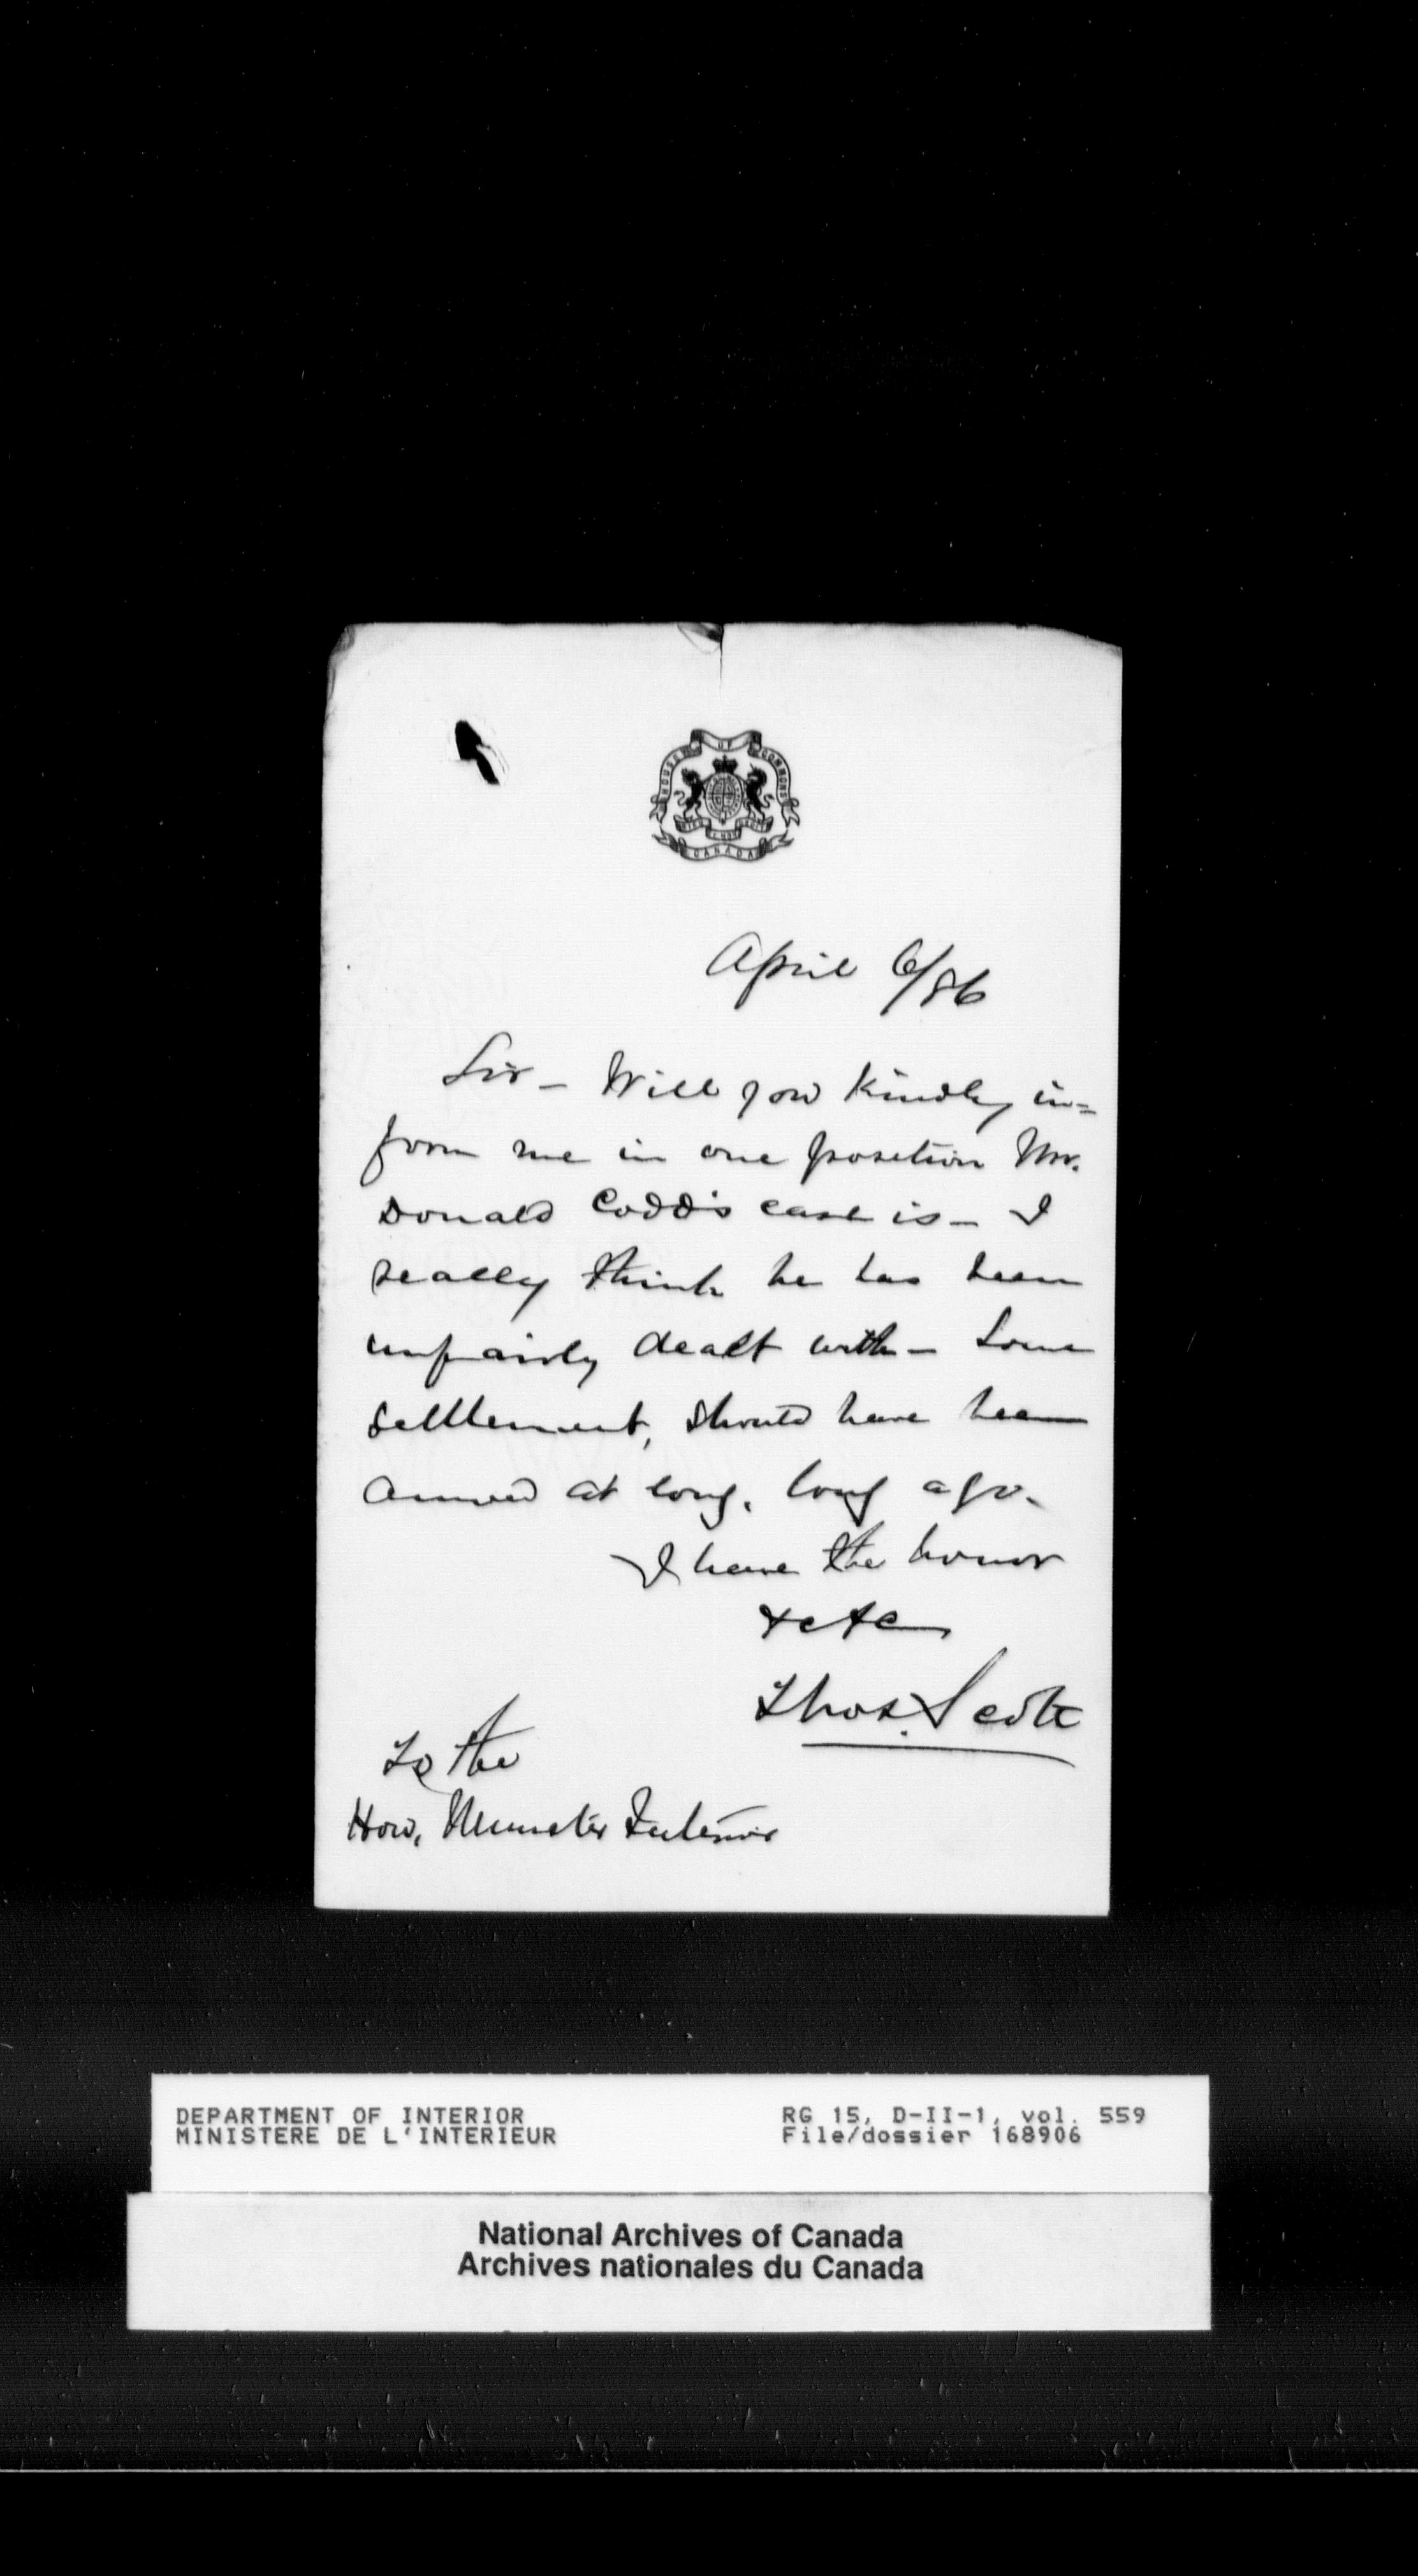 HOUSE OF COMMONS
CANADA
April 6/86
Sir - Will you kindly in=
form me in one position Mr.
Donald Codd's case is - I
really think he has been
unfairly dealt with - Some
settlement, should have been
arrived at long, long ago.
I have the honor
&c &c
Thos. Scott
To the
Hon. Minister Interior
DEPARTMENT OF INTERIOR
MINISTERE DE L'INTERIEUR
RG 15, D-II-1, vol. 559
File/dossier 168906
National Archives of Canada
Archives nationales du Canada